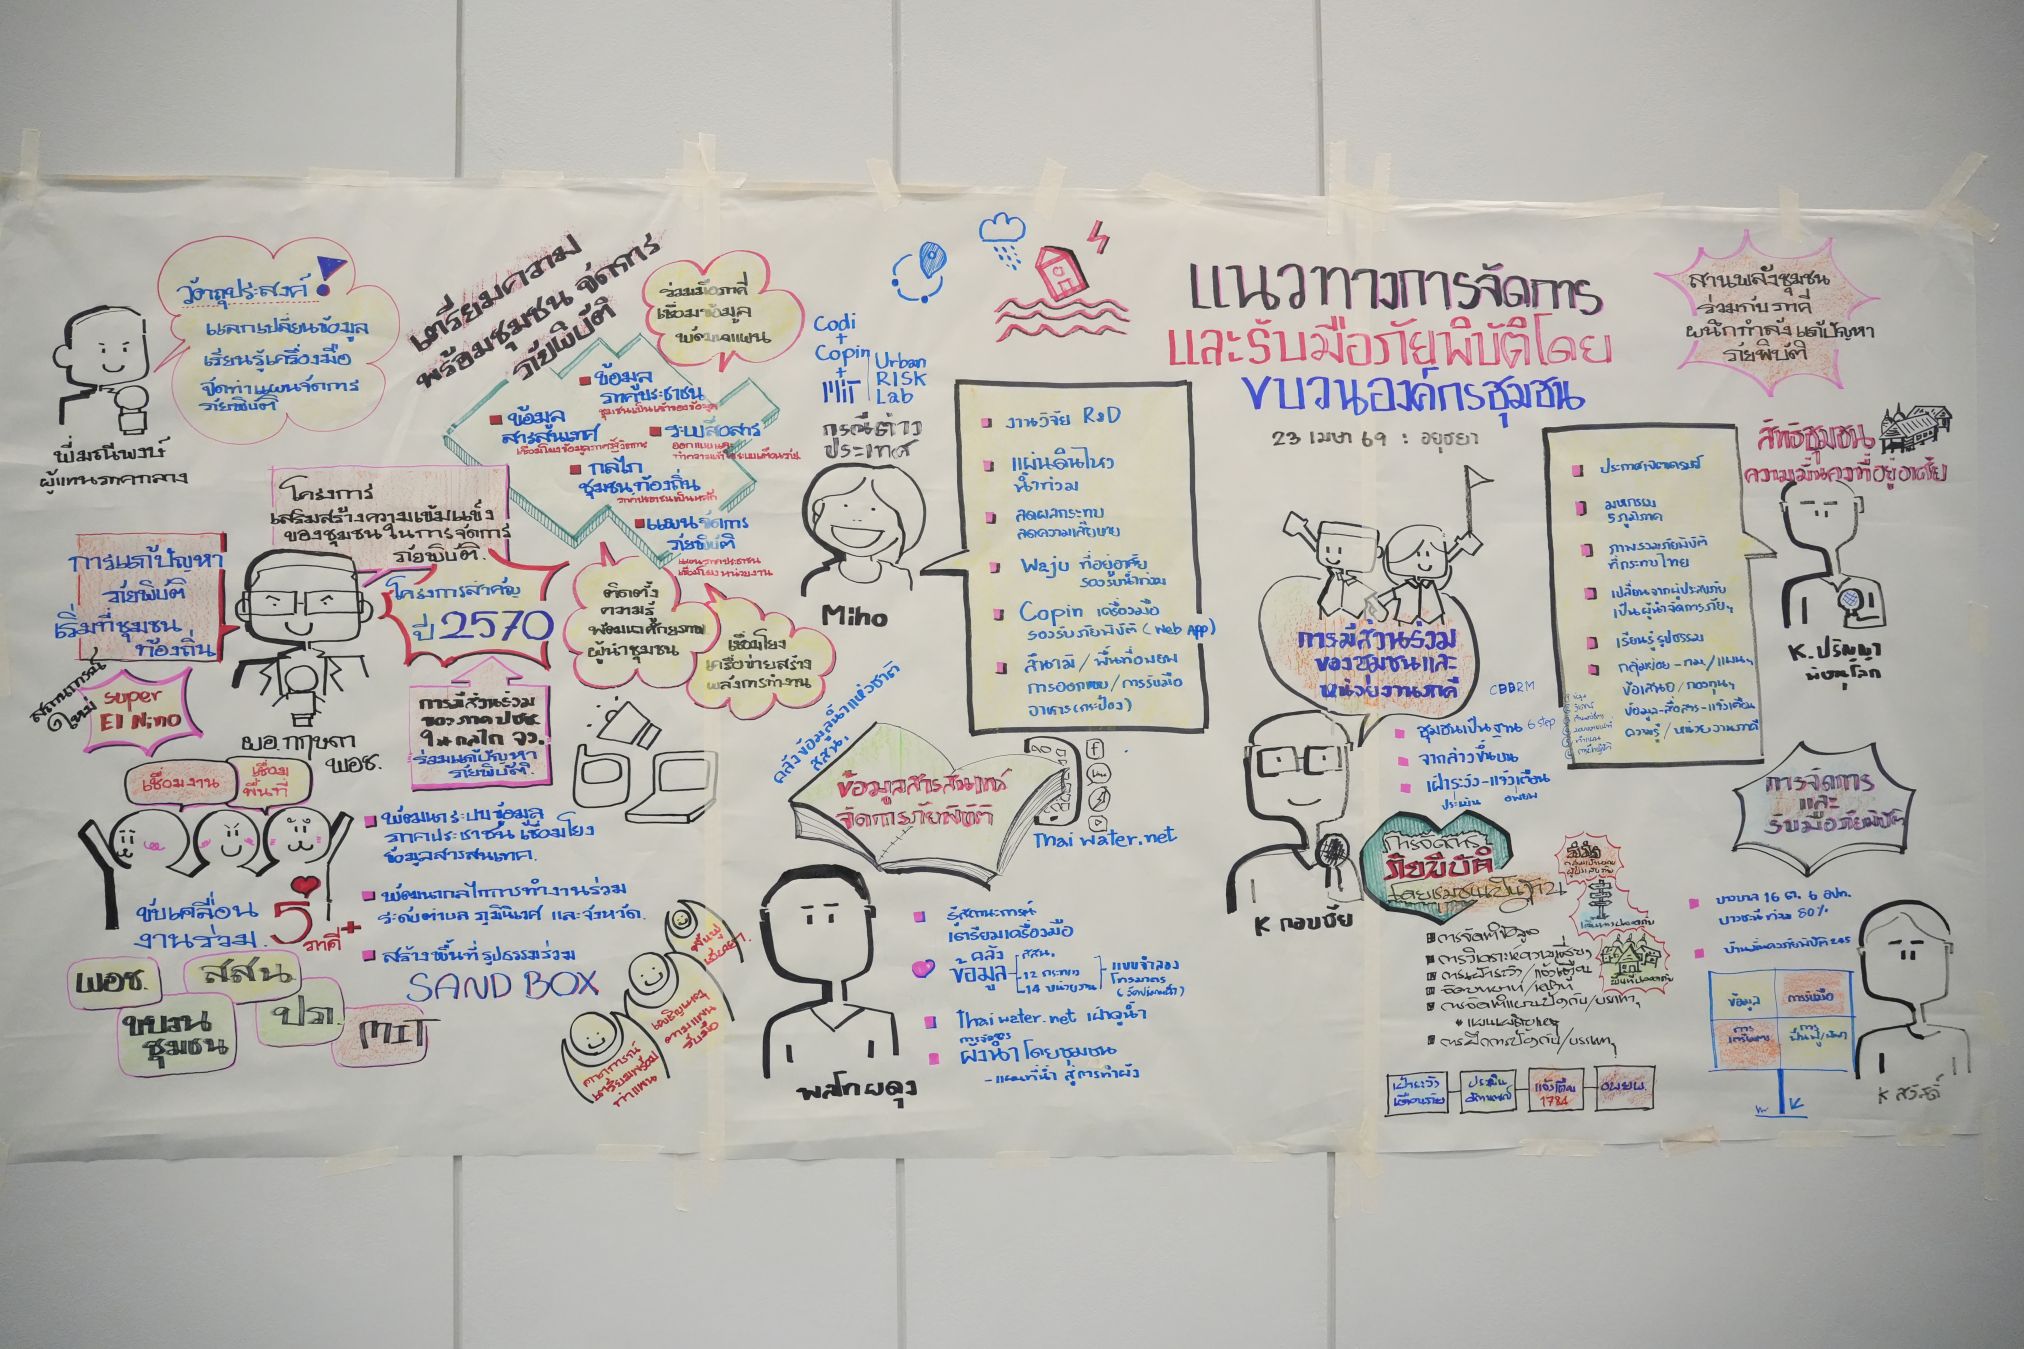 วัตถุประสงค์!
แลกเปลี่ยนข้อมูล
เรียนรู้เครื่องมือ
จัดทำแผนจัดการ
ภัยพิบัติ
ผู้แทนภาคกลาง
เตรียมความ
พร้อมชุมชน จัดการ
ภัยพิบัติ
ร่วมมือภาคี
เชื่อมข้อมูล
พัฒนาแผน
ข้อมูล
ภาคประชาชน
ชุมชนเป็นเจ้าของข้อมูล
ข้อมูล
สารสนเทศ
ระบบสื่อสาร
กลไก
ชุมชนท้องถิ่น
ภาคประชาชนเป็นหลัก
แผนจัดการ
ภัยพิบัติ
แผนภาคประชาชน
เชื่อมโยงหน่วยงาน
โครงการ
เสริมสร้างความเข้มแข็ง
ของชุมชนในการจัดการ
ภัยพิบัติ.
การแก้ปัญหา
ภัยพิบัติ
เริ่มที่ชุมชน
ท้องถิ่น
โครงการสำคัญ
ปี 2570
สถานการณ์
ใหม่
super
El Nino
พอช.
การมีส่วนร่วม
ของภาค ปชช.
ในกลไก จว.
ร่วมแก้ปัญหา
ภัยพิบัติ.
ติดตั้ง
ความรู้
พัฒนาศักยภาพ
ผู้นำชุมชน
เชื่อมโยง
เครือข่ายสร้าง
พลังการทำงาน
เชื่อมงาน
เชื่อม
พื้นที่
ขับเคลื่อน
งานร่วม 5 ภาคี+
พอช.
สสน
ขบวน
ชุมชน
ปภ.
MIT
พัฒนาระบบข้อมูล
ภาคประชาชน เชื่อมโยง
ข้อมูลสารสนเทศ.
พัฒนากลไกการทำงานร่วม
ระดับตำบล ภูมินิเวศ และจังหวัด.
สร้างพื้นที่รูปธรรมร่วม
SAND BOX
ฟื้นฟู
เยียวยา.
เผชิญเหตุ
ตามแผน
รับมือ
คาดการณ์
เตรียมพร้อม
ทำแผน
Codi
+
Copin
+
MIT
Urban
RISK
Lab
กรณีต่าง
ประเทศ
Miho
งานวิจัย R&D
แผ่นดินไหว
น้ำท่วม
ลดผลกระทบ
ลดความเสียหาย
Waju ที่อยู่อาศัย
รองรับน้ำท่วม
Copin เครื่องมือ
รองรับภัยพิบัติ (Web App)
สึนามิ / พื้นที่อพยพ
การออกแบบ/การรับมือ
อาหาร(กระป๋อง)
คลังข้อมูลน้ำแห่งชาติ
สสน.
ข้อมูลสารสนเทศ
จัดการภัยพิบัติ
Thai water.net
รู้สถานะการณ์
เตรียมเครื่องมือ
คลัง
ข้อมูล
สสน.
12 กระทรวง
14 หน่วยงาน
แบบจำลอง
Thai water.net เฝ้าดูน้ำ
การจัดการ
ผังน้ำ โดยชุมชน
- แผนที่น้ำ สู่การทำผัง
แนวทางการจัดการ
และรับมือภัยพิบัติโดย
ขบวนองค์กรชุมชน
23 เมษา 69 : อยุธยา
การมีส่วนร่วม
ของชุมชนและ
หน่วยงานภาคี
CBDRM
ชุมชนเป็นฐาน 6 step
จากล่างขึ้นบน
เฝ้าระวัง-แจ้งเตือน
ประเมิน อพยพ
K กอบชัย
การจัดการ
ภัยพิบัติ
โดยชุมชนเป็นฐาน
การจัดทำข้อมูล
การวิเคราะห์ความเสี่ยง
การเฝ้าระวัง/แจ้งเตือน
การจัดทำแผนป้องกัน/บรรเทาฯ
* แผนเผชิญเหตุ
การฝึกการป้องกัน/บรรเทาฯ
เฝ้าระวัง
เตือนภัย
ประเมิน
สถานการณ์
แจ้งเตือน
1784
อพยพ.
สานพลังชุมชน
ร่วมกับภาคี
ผนึกกำลังแก้ปัญหา
ภัยพิบัติ
สิทธิชุมชน
ความมั่นคงที่อยู่อาศัย
มหกรรม
5 ภูมิภาค
ภาพรวมภัยพิบัติ
ที่กระทบไทย
เปลี่ยนจากผู้ประสบภัย
เป็นผู้นำจัดการภัยฯ
เรียนรู้รูปธรรม
ข้อเสนอ/กองทุนฯ
ข้อมูล-สื่อสาร-แจ้งเตือน
ความรู้/หน่วยงานภาคี
K.ปริญญา
พิษณุโลก
การจัดการ
และ
รับมือภัยพิบัติ
บางบาล 16 ต. 6 อปท.
ข้อมูล
การรับมือ
การ
เตรียมการ
การ
ฟื้นฟู/พัฒนา
K สวัสดิ์